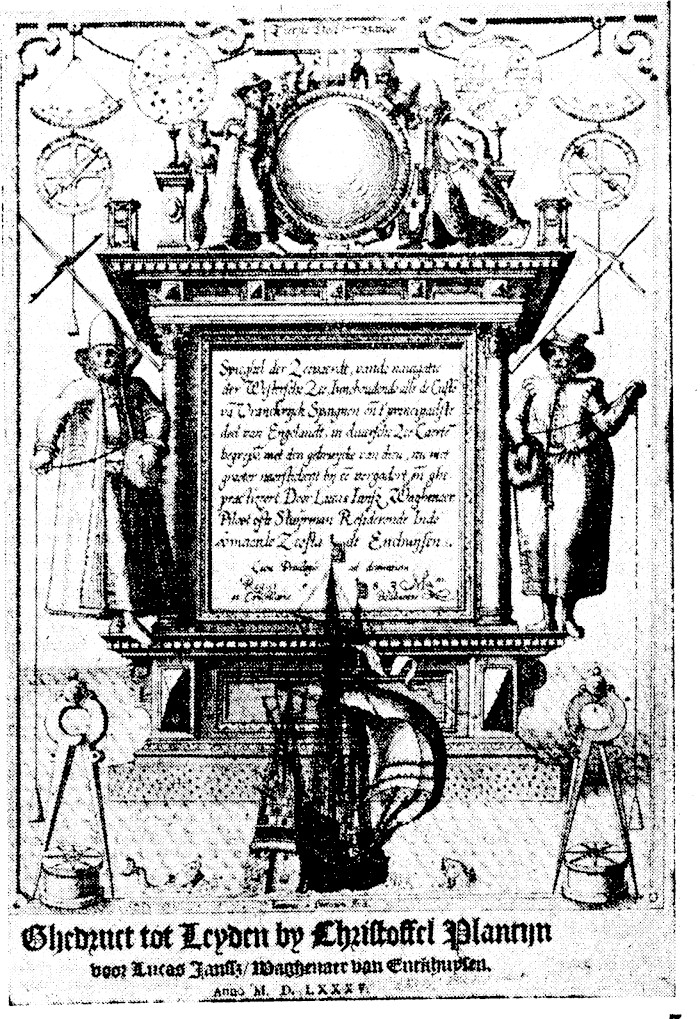 Spieghel der Zeevaerdt, vande navigatie
der Westersche Zee, Innehoudende alle de Custē
vā Vranckryck Spaignen eñ t'principaelste
deel van Engelandt, in diversche Zee Caertē
begrepē, met den gebruycke van dien, nu met
grooter naersticheyt by ēē vergadert eñ ghe
practizeert Door Lucas Iansz Waghenaer
Piloot ofte Stuyrman Residerende Inde
vermaerde Zeestadt Enchuysen.
Cum Privilegio ad
Ghedruct tot Leyden by Christoffel Plantijn
voor Lucas Janssz/Waghenaer van Enckhuysen.
Anno M. D. LXXXV.